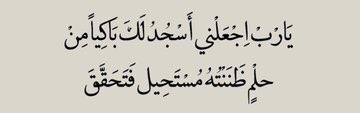 يَارَبْ اِجْعَلْني أَسْجُدُ لَكَ بَاكِياً مِنْ
حلْمٍ ظَنَنْتُهُ مُسْتَحِيل فَتَحَقَّقَ